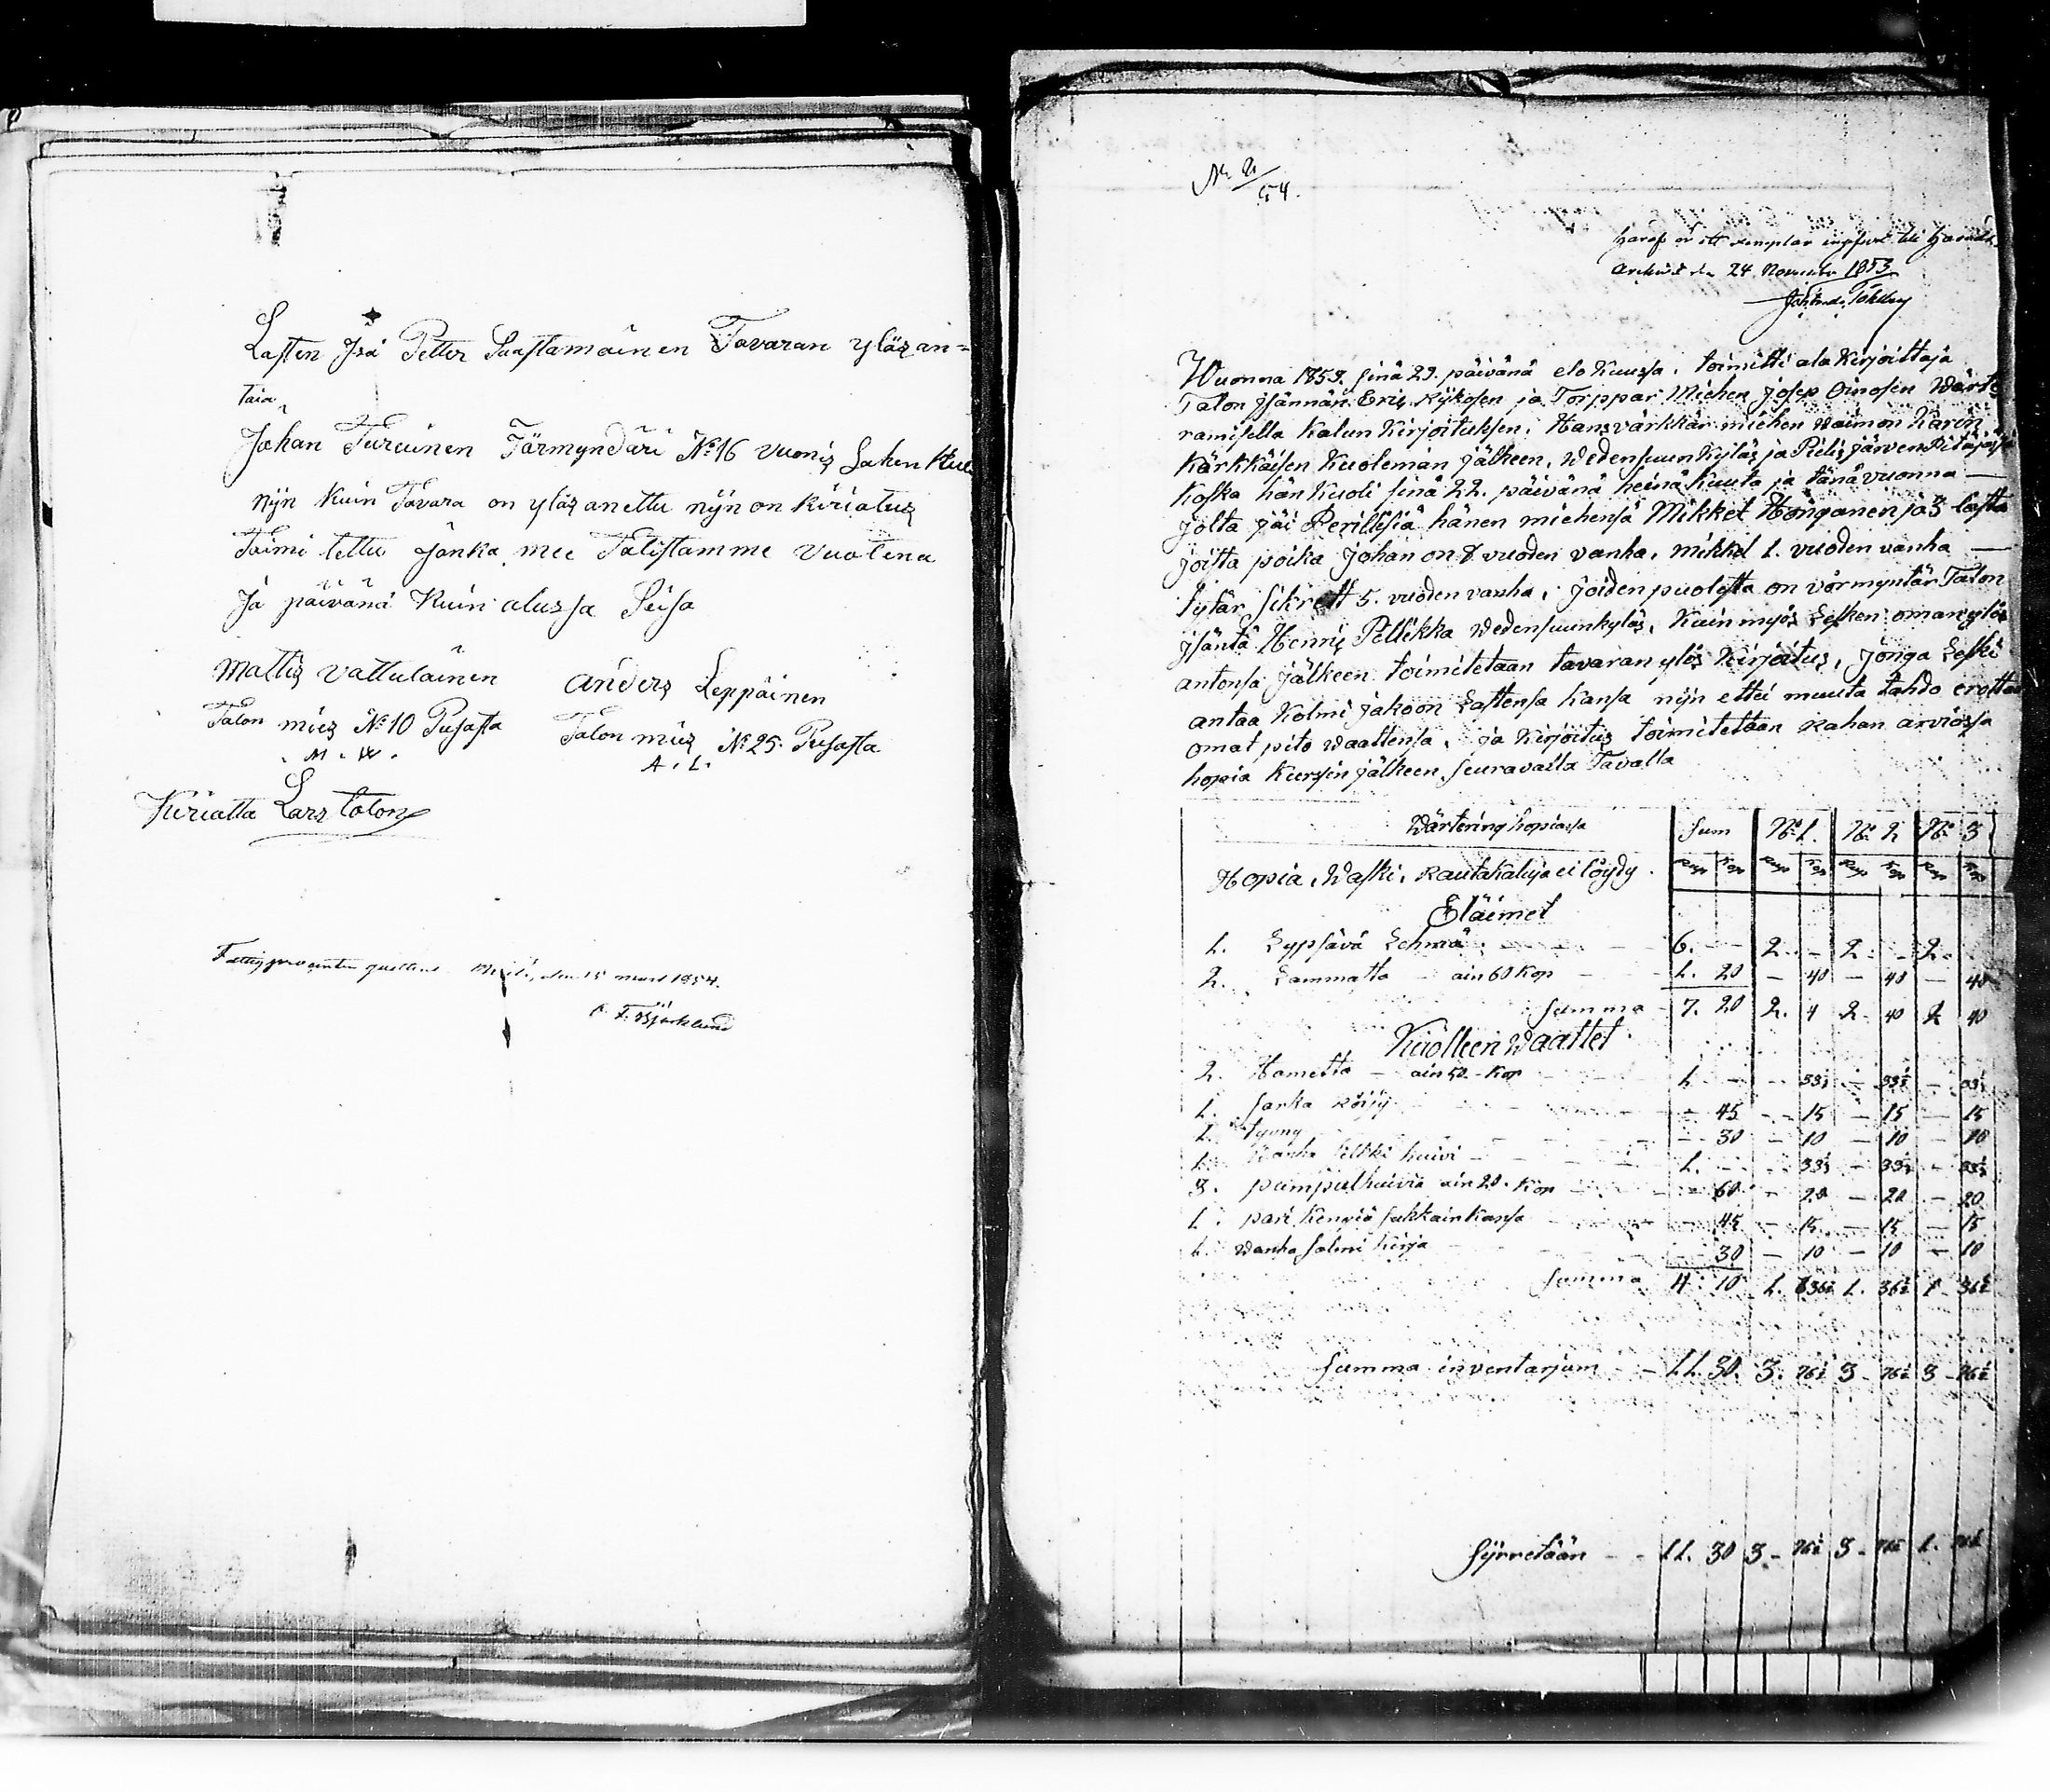 Lasten Isä Petter Saastamoinen Tavaran yläz an=
taia
Johan Turuinen Förmyndäri No 16 Vuoniz Lahen Kuu
Nijn Kuin Tavara on yläz anettu nijn on kiriatuz
Toimi tettu Jonka mee Tatistamme Vuotena
Ja päivänä Kuin alussa Seisa
Mattiz Vattulainen
Talon miez No 10 Pusasta
M. W.
anders Leppäinen
Talon miez No 25. Pusasta
A. L.
Kiriatta Lars tolon
Fattigprocenten quitteras den 15 mars 1854.
Björklund
No 21/54.
Häraf är ett exemplar ingifvet till Härads
Archivet den 24 November 1853
Wuonna 1853. sinä 29. päivänä elo Kuussa, toimitti ala Kirjoittaja
Talon Isännän Eriz Kijkosen ja Torppar Miehen Josep Oinosen Wärte
ramisella Kalun Kirjoituksen, Hansvärkkär miehen waimon Karin
Kärkkäisen Kuoleman jälkeen, Wedensuun Kyläz ja Pieliz järven Pitäjässä
Koska hän Kuoli sinä 22. päivänä heinä Kuuta ja tänä vuonna —
jolta jäi Perillisiä hänen miehensä Mikkel Honganen ja 3 lasta
joista poika Johan on 8 vuoden vanha, Mikkel 1. vuoden vanha —
tytär Sikrett 5. vuoden vanha, joiden puolesta on vörmyntär Talon
Isäntä Henriz Pellikka Wedensuunkyläs, Kuin myös Lesken oman ylös
antonsa jälkeen toimitetaan tavaran ylös Kirjoitus, jonga Leski
antaa Kolmi jakoon Lastensa kansa nijn ettei muuta tahdo erottaa
omat pito waattensa, ja Kirjoituz toimitetaan rahan arviossa
hopia Kurssin jälkeen, seuravalla Tavalla
Wärtering hopiassa Sum No 1. No 2 No 3
Hopia, Waski, Rautakaluja ei löydy. Rup Kop Rup Kop Rup Kop Rup Kop
Eläimet
1. Lypsävä Lehmä 6. — 2. — 2. — 2.
2. Lammatta — ain 60 Kop 1. 20 — 40 — 40 — 40
Summa 7. 20 2. 4 2. 40 2 40
Kuolleen Waattet
2. Hametta — ain 50 Kop 1. — — 33⅓ — 33⅓ — 33⅓
1. Sarka röijy — 45 — 15 — 15 — 15
1. tyyny — 30 — 10 — 10 — 10
1. Wanha silkki huivi 1. — — 33⅓ — 33⅓ — 33⅓
3. pumpulhuivia ain 20. Kop — 60 — 20 — 20 — 20
1. pari Kengiä sukkain Kansa — 45 — 15 — 15 — 15
1. Wanha Salmi Kirja — 30 — 10 — 10 — 10
Summa 4. 10 1. 36⅔ 1. 36⅔ 1 36⅔
Summa inventarjum — 11. 30. 3. 76⅔ 3 — 76⅔ 3 — 76⅔
Sijrretään — 11. 30 3 — 76⅔ 3 — 76⅔